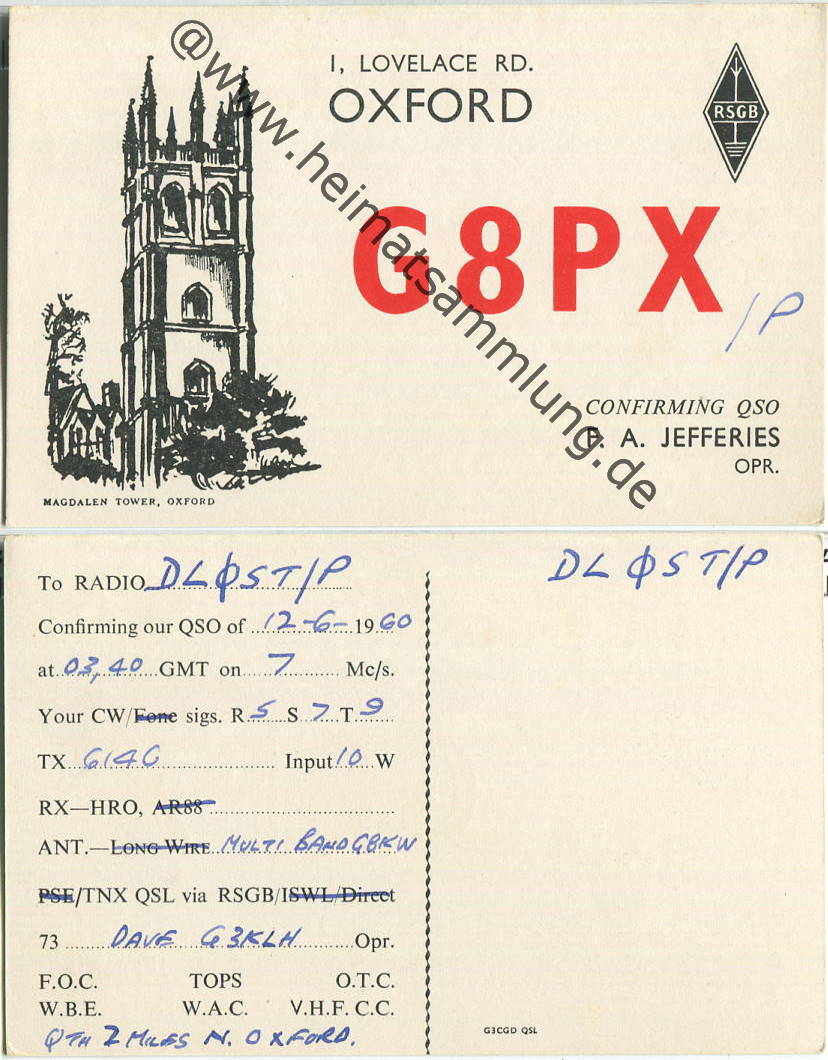 @www.heimatsammlung.de
1, LOVELACE RD.
OXFORD
RSGB
G8PX
/P
CONFIRMING QSO
F. A. JEFFERIES
OPR.
MAGDALEN TOWER, OXFORD
To RADIO DLØST/P
Confirming our QSO of 12-6- 1960
at 03,40 GMT on 7 Mc/s.
Your CW/Fone sigs. R 5 S 7 T 9
TX 6146 Input 10 W
RX—HRO, AR88
ANT.—LONG WIRE MULTI BAND G8KW
PSE/TNX QSL via RSGB/ISWL/Direct
73 DAVE G3KLH Opr.
F.O.C. TOPS O.T.C.
W.B.E. W.A.C. V.H.F. C.C.
QTH 2 MILES N. OXFORD.
DLØST/P
G3CGD QSL